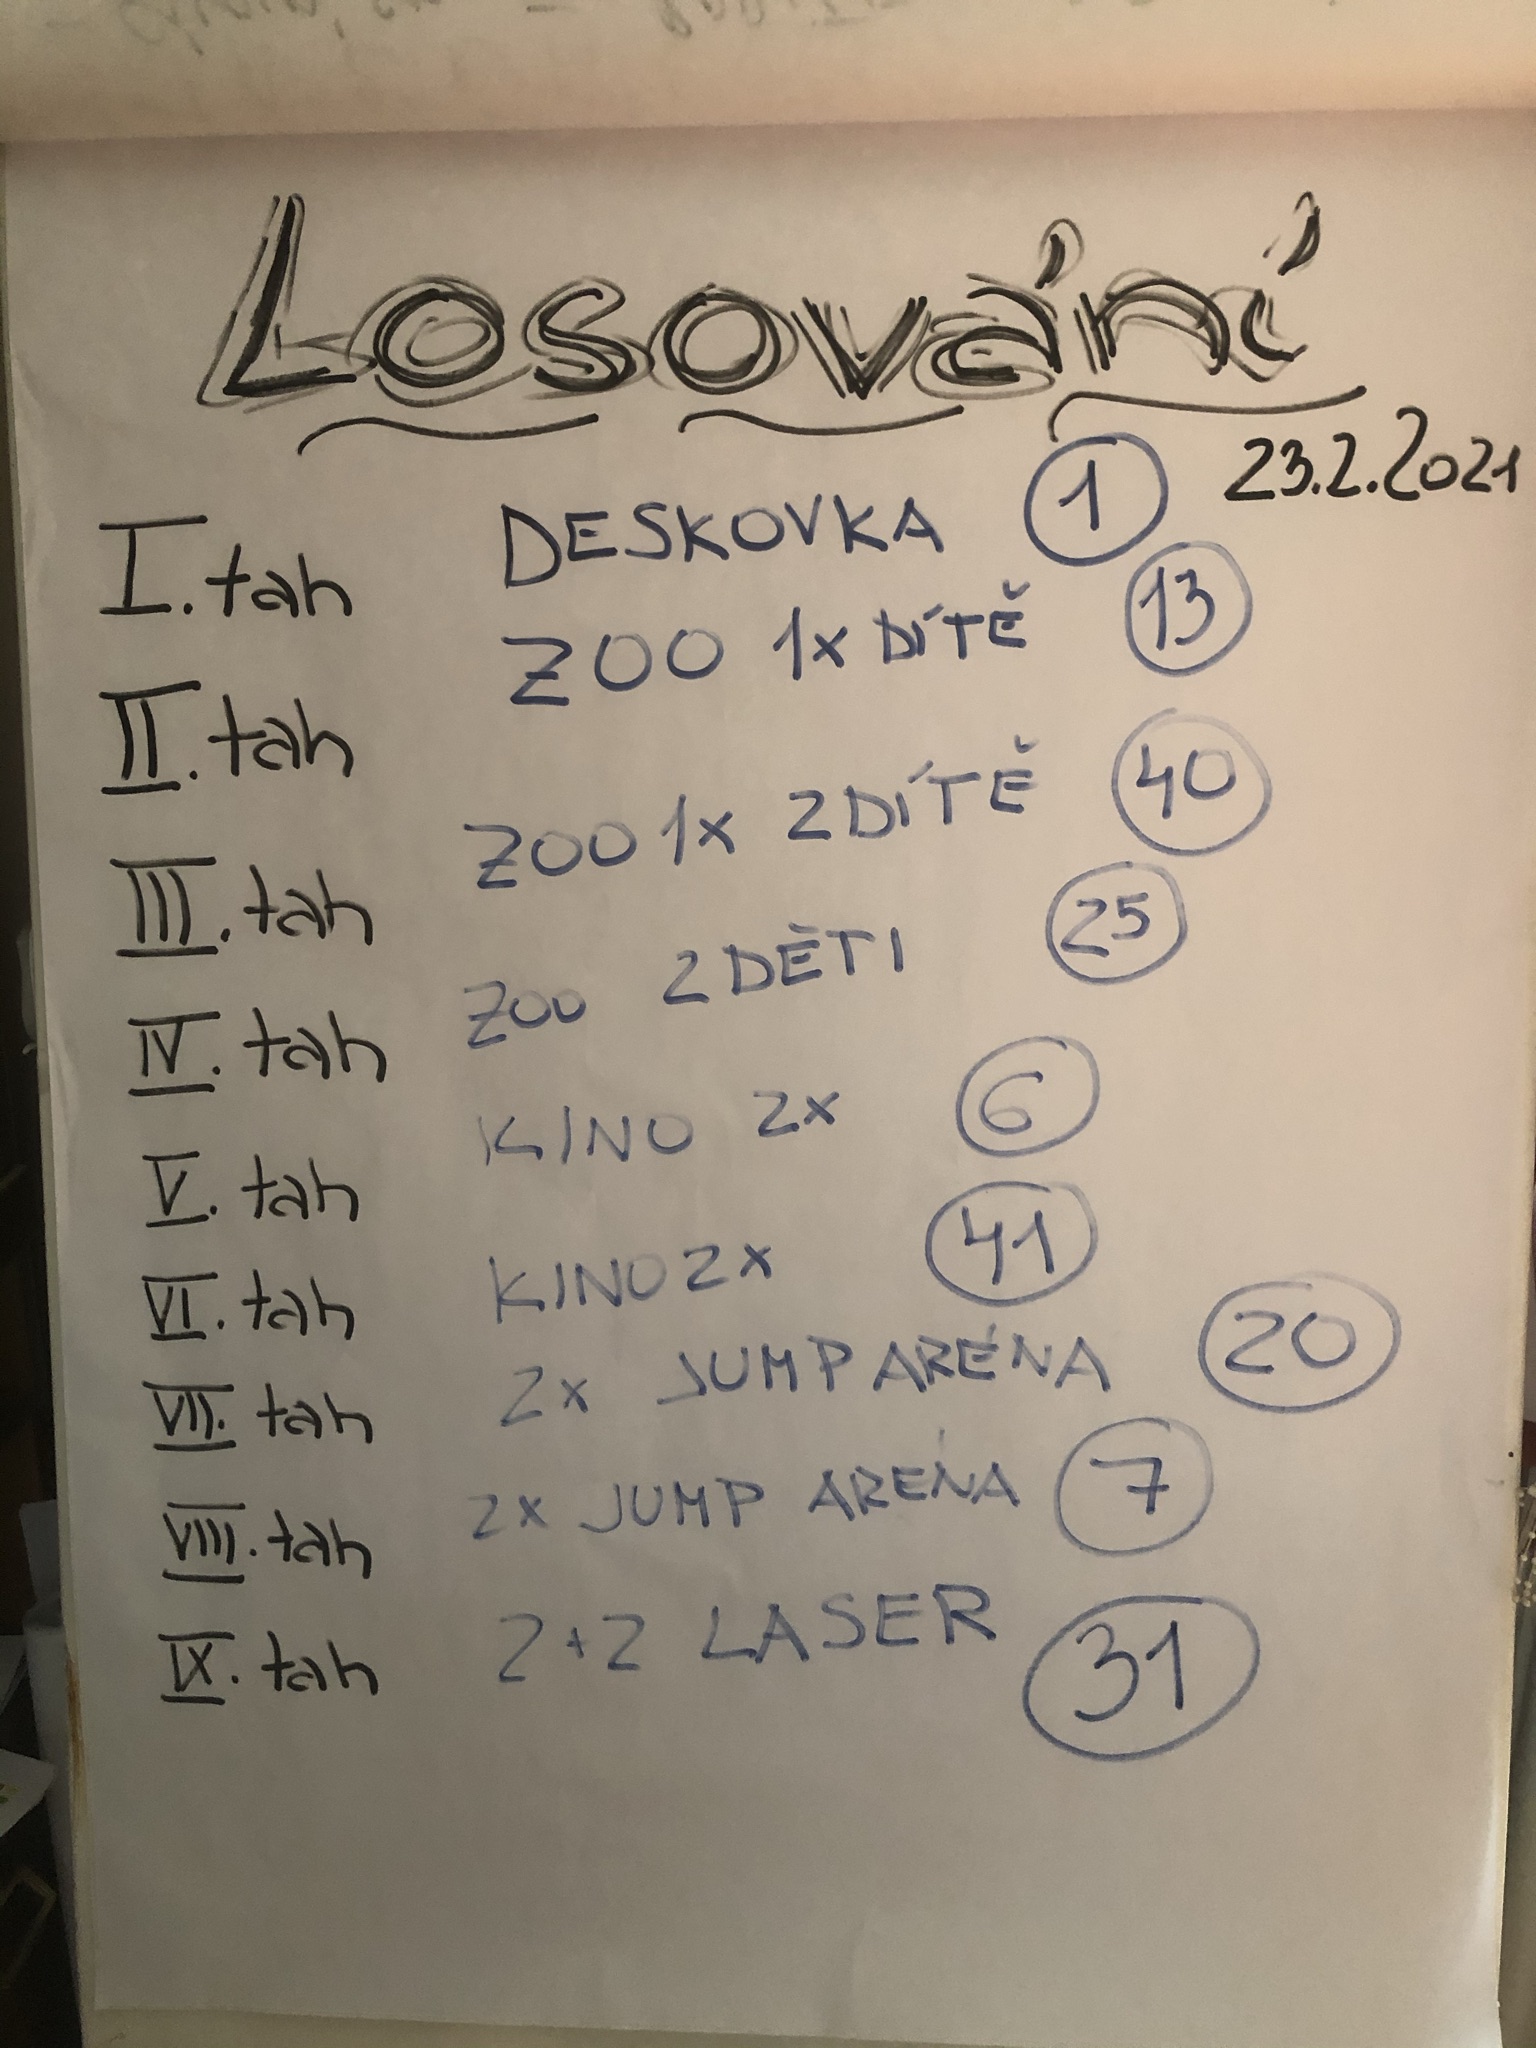 Losování
23.2.2021
I. tah DESKOVKA 1
II. tah ZOO 1x DÍTĚ 13
III. tah ZOO 1x 2DÍTĚ 40
IV. tah ZOO 2 DĚTI 25
V. tah KINO 2x 6
VI. tah KINO 2x 41
VII. tah 2x JUMP ARÉNA 20
VIII. tah 2x JUMP ARÉNA 7
IX. tah 2+2 LASER 31